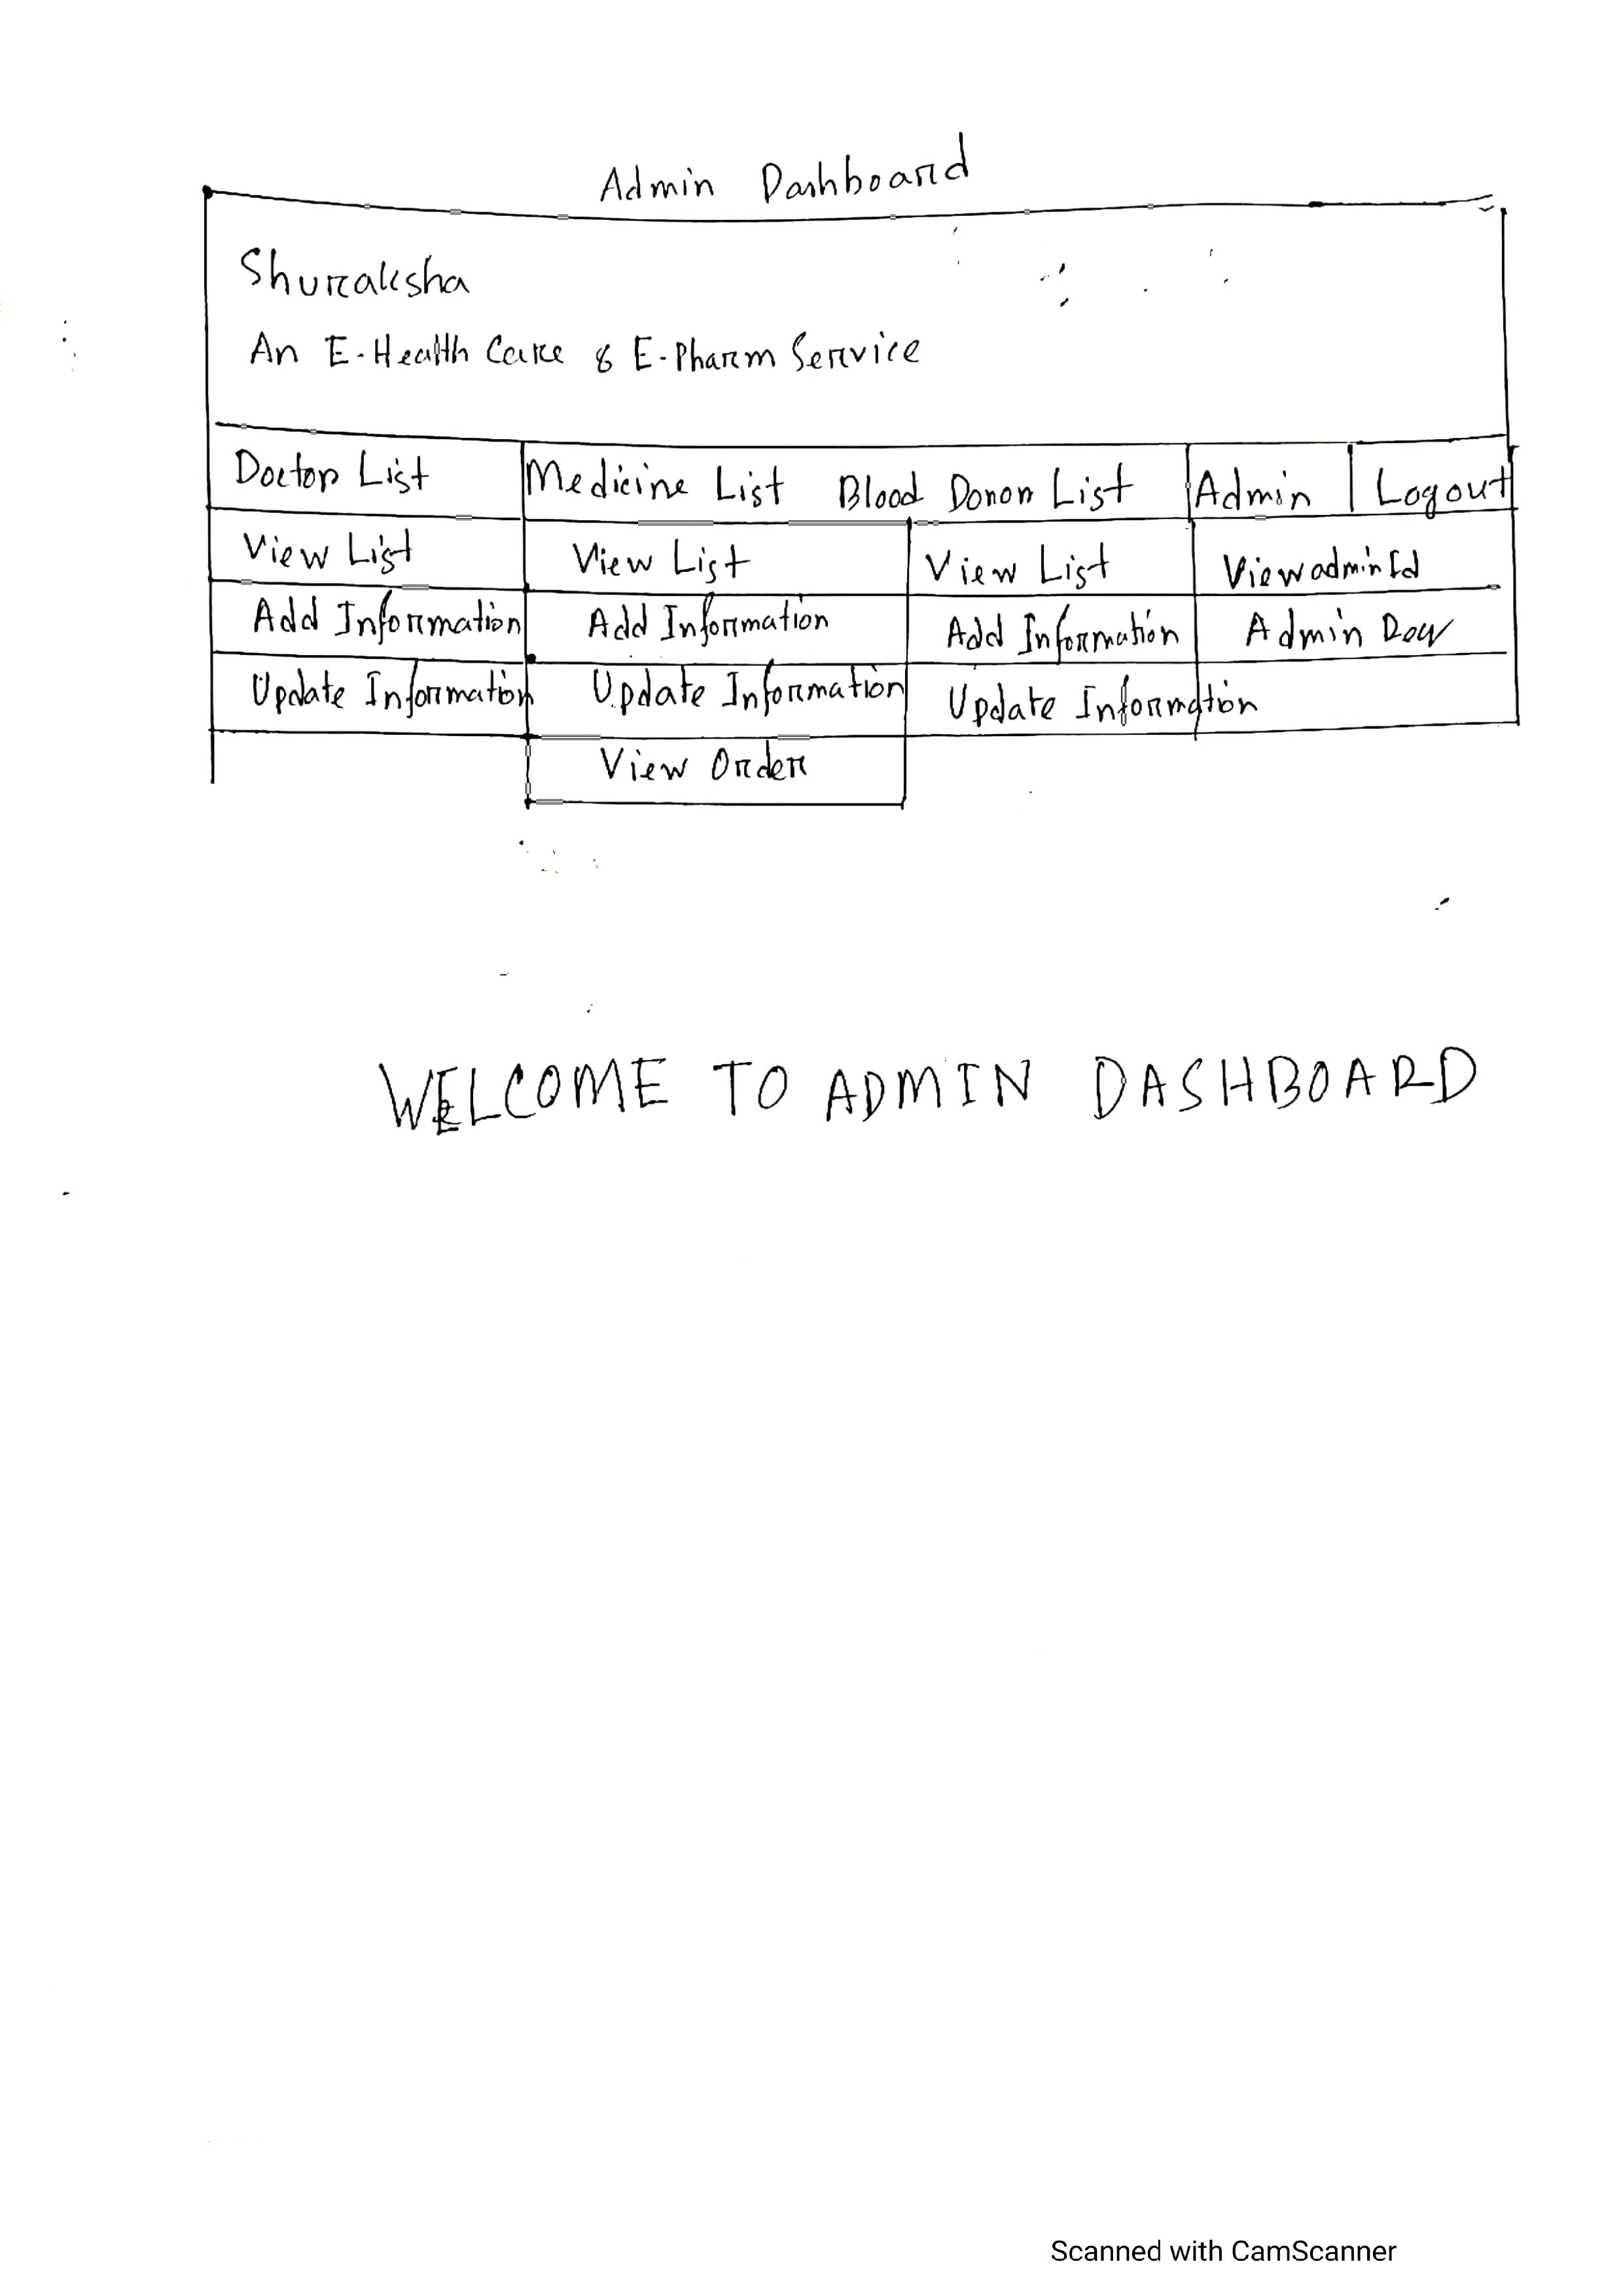 Admin Dashboard
Shuraksha
An E-Health Care & E-Pharm Service
Doctor List Medicine List Blood Donor List Admin Logout
View List View List View List View adminId
Add Information Add Information Add Information Admin
Update Information Update Information Update Information
View Order
WELCOME TO ADMIN DASHBOARD
Scanned with CamScanner